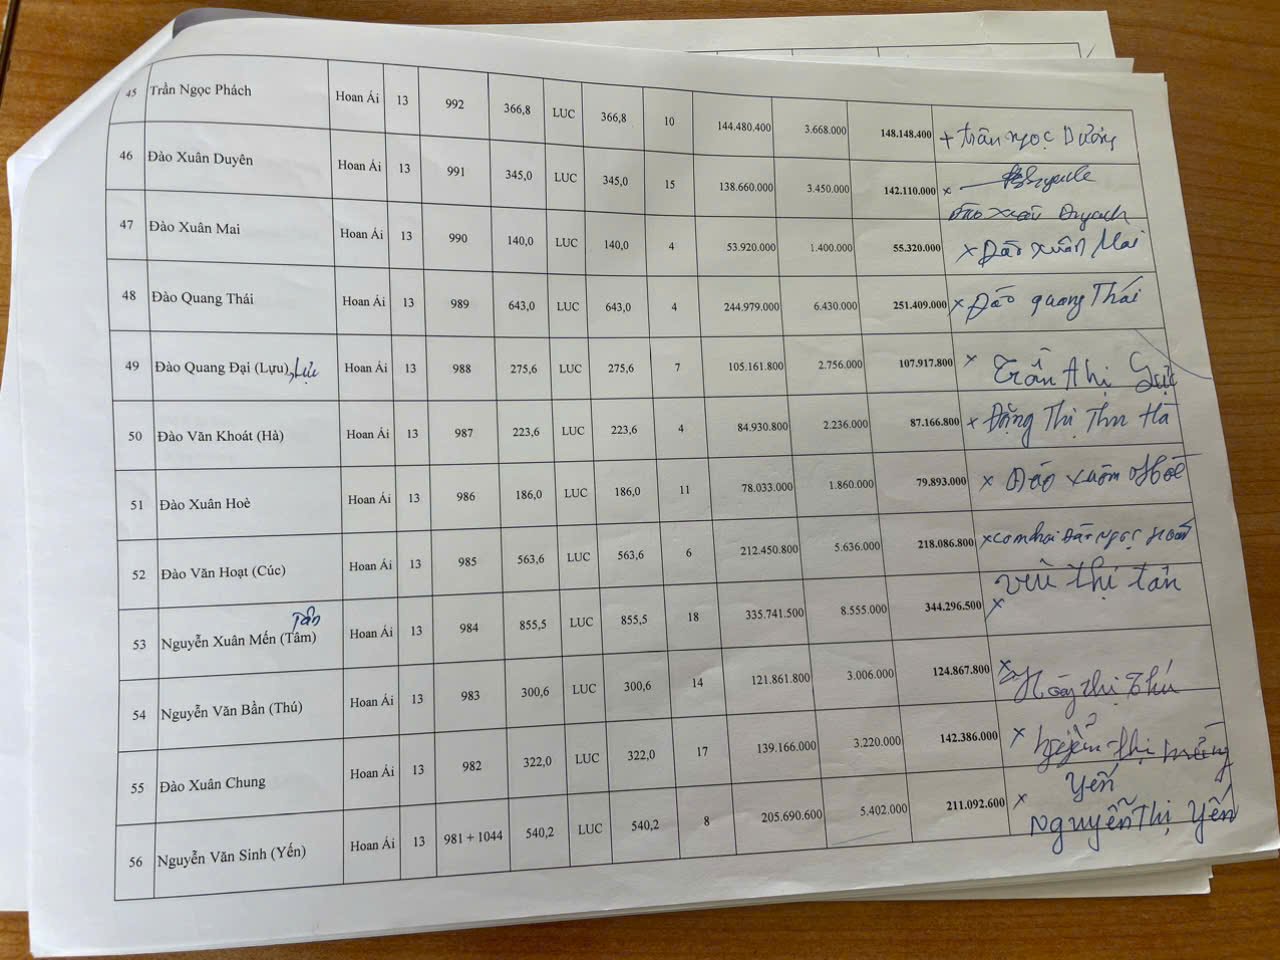 45 Trần Ngọc Phách Hoan Ái 13 992 366,8 LUC 366,8 10 144.480.400 3.668.000 148.148.400 + trần ngọc Dưởng
46 Đào Xuân Duyên Hoan Ái 13 991 345,0 LUC 345,0 15 138.660.000 3.450.000 142.110.000 x
Đào Xuân
47 Đào Xuân Mai Hoan Ái 13 990 140,0 LUC 140,0 4 53.920.000 1.400.000 55.320.000 x Đào Xuân Mai
48 Đào Quang Thái Hoan Ái 13 989 643,0 LUC 643,0 4 244.979.000 6.430.000 251.409.000 x Đào quang Thái
49 Đào Quang Đại (Lựu) Lực Hoan Ái 13 988 275,6 LUC 275,6 7 105.161.800 2.756.000 107.917.800 x Trần thị
50 Đào Văn Khoát (Hà) Hoan Ái 13 987 223,6 LUC 223,6 4 84.930.800 2.236.000 87.166.800 x Đặng Thị Thu Hà
51 Đào Xuân Hoè Hoan Ái 13 986 186,0 LUC 186,0 11 78.033.000 1.860.000 79.893.000 x Đào Xuân Hoè
52 Đào Văn Hoạt (Cúc) Hoan Ái 13 985 563,6 LUC 563,6 6 212.450.800 5.636.000 218.086.800 x con Đào Ngọc
Tản
53 Nguyễn Xuân Mến (Tâm) Hoan Ái 13 984 855,5 LUC 855,5 18 335.741.500 8.555.000 344.296.500 x vũ thị tản
54 Nguyễn Văn Bần (Thú) Hoan Ái 13 983 300,6 LUC 300,6 14 121.861.800 3.006.000 124.867.800 x thị Thú
55 Đào Xuân Chung Hoan Ái 13 982 322,0 LUC 322,0 17 139.166.000 3.220.000 142.386.000 x Nguyễn thị
Yến
56 Nguyễn Văn Sinh (Yến) Hoan Ái 13 981 + 1044 540,2 LUC 540,2 8 205.690.600 5.402.000 211.092.600 x Nguyễn Thị Yến